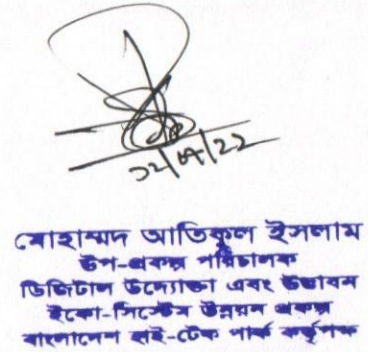 ১২/০৭/২২
মোহাম্মদ আতিকুল ইসলাম
উপ-প্রকল্প পরিচালক
ডিজিটাল উদ্যোক্তা এবং উদ্ভাবন
ইকো-সিস্টেম উন্নয়ন প্রকল্প
বাংলাদেশ হাই-টেক পার্ক কর্তৃপক্ষ